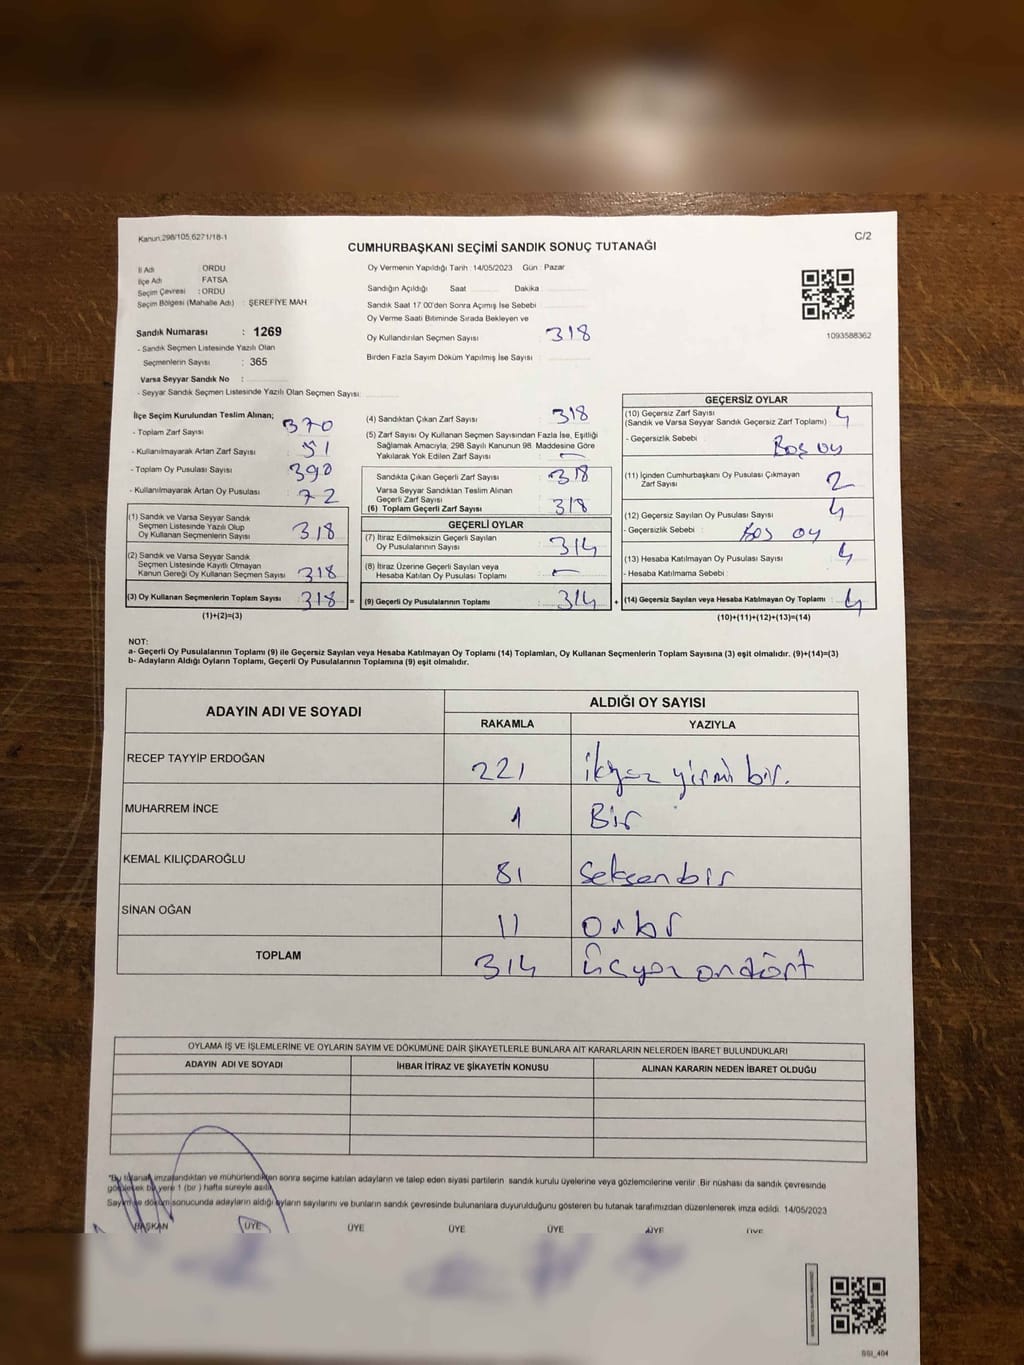 Kanun:298/105,6271/18-1
C/2
CUMHURBAŞKANI SEÇİMİ SANDIK SONUÇ TUTANAĞI
İl Adı : ORDU
İlçe Adı : FATSA
Seçim Çevresi : ORDU
Seçim Bölgesi (Mahalle Adı) : ŞEREFİYE MAH
Sandık Numarası : 1269
- Sandık Seçmen Listesinde Yazılı Olan
Seçmenlerin Sayısı : 365
Varsa Seyyar Sandık No :
- Seyyar Sandık Seçmen Listesinde Yazılı Olan Seçmen Sayısı:
Oy Vermenin Yapıldığı Tarih :14/05/2023 Gün : Pazar
Sandığın Açıldığı Saat Dakika
Sandık Saat 17.00'den Sonra Açımış İse Sebebi
Oy Verme Saati Bitiminde Sırada Bekleyen ve
Oy Kullandırılan Seçmen Sayısı : 318
Birden Fazla Sayım Döküm Yapılmış İse Sayısı :
1093588362
İlçe Seçim Kurulundan Teslim Alınan;
- Toplam Zarf Sayısı : 370
- Kullanılmayarak Artan Zarf Sayısı : 51
- Toplam Oy Pusulası Sayısı : 390
- Kullanılmayarak Artan Oy Pusulası : 72
(1) Sandık ve Varsa Seyyar Sandık
Seçmen Listesinde Yazılı Olup
Oy Kullanan Seçmenlerin Sayısı : 318
(2) Sandık ve Varsa Seyyar Sandık
Seçmen Listesinde Kayıtlı Olmayan
Kanun Gereği Oy Kullanan Seçmen Sayısı : 318
(3) Oy Kullanan Seçmenlerin Toplam Sayısı : 318 =
(1)+(2)=(3)
(4) Sandıktan Çıkan Zarf Sayısı : 318
(5) Zarf Sayısı Oy Kullanan Seçmen Sayısından Fazla İse, Eşitliği
Sağlamak Amacıyla, 298 Sayılı Kanunun 98. Maddesine Göre
Yakılarak Yok Edilen Zarf Sayısı : -
Sandıkta Çıkan Geçerli Zarf Sayısı : 318
Varsa Seyyar Sandıktan Teslim Alınan
Geçerli Zarf Sayısı :
(6) Toplam Geçerli Zarf Sayısı : 318
GEÇERLİ OYLAR
(7) İtiraz Edilmeksizin Geçerli Sayılan
Oy Pusulalarının Sayısı : 314
(8) İtiraz Üzerine Geçerli Sayılan veya
Hesaba Katılan Oy Pusulası Toplamı : -
(9) Geçerli Oy Pusulalarının Toplamı : 314 +
GEÇERSİZ OYLAR
(10) Geçersiz Zarf Sayısı : 4
(Sandık ve Varsa Seyyar Sandık Geçersiz Zarf Toplamı)
- Geçersizlik Sebebi : Boş oy
(11) İçinden Cumhurbaşkanı Oy Pusulası Çıkmayan
Zarf Sayısı : 2
(12) Geçersiz Sayılan Oy Pusulası Sayısı : 4
- Geçersizlik Sebebi : Boş oy
(13) Hesaba Katılmayan Oy Pusulası Sayısı : 4
- Hesaba Katılmama Sebebi :
(14) Geçersiz Sayılan veya Hesaba Katılmayan Oy Toplamı : 4
(10)+(11)+(12)+(13)=(14)
NOT:
a- Geçerli Oy Pusulalarının Toplamı (9) ile Geçersiz Sayılan veya Hesaba Katılmayan Oy Toplamı (14) Toplamları, Oy Kullanan Seçmenlerin Toplam Sayısına (3) eşit olmalıdır. (9)+(14)=(3)
b- Adayların Aldığı Oyların Toplamı, Geçerli Oy Pusulalarının Toplamına (9) eşit olmalıdır.
ADAYIN ADI VE SOYADI ALDIĞI OY SAYISI
RAKAMLA YAZIYLA
RECEP TAYYİP ERDOĞAN 221 ikiyüz yirmi bir.
MUHARREM İNCE 1 Bir
KEMAL KILIÇDAROĞLU 81 Seksenbir
SİNAN OĞAN 11 Onbir
TOPLAM 314 Üçyüz ondört
OYLAMA İŞ VE İŞLEMLERİNE VE OYLARIN SAYIM VE DÖKÜMÜNE DAİR ŞİKAYETLERLE BUNLARA AİT KARARLARIN NELERDEN İBARET BULUNDUKLARI
ADAYIN ADI VE SOYADI İHBAR İTİRAZ VE ŞİKAYETİN KONUSU ALINAN KARARIN NEDEN İBARET OLDUĞU
"Bu tutanak imzalandıktan ve mühürlendikten sonra seçime katılan adayların ve talep eden siyasi partilerin sandık kurulu üyelerine veya gözlemcilerine verilir. Bir nüshası da sandık çevresinde
görülecek bir yere 1 (bir ) hafta süreyle asılır.
Sayım ve döküm sonucunda adayların aldığı oyların sayılarını ve bunların sandık çevresinde bulunanlara duyurulduğunu gösteren bu tutanak tarafımızdan düzenlenerek imza edildi. 14/05/2023
BAŞKAN ÜYE ÜYE ÜYE ÜYE ÜYE ÜYE